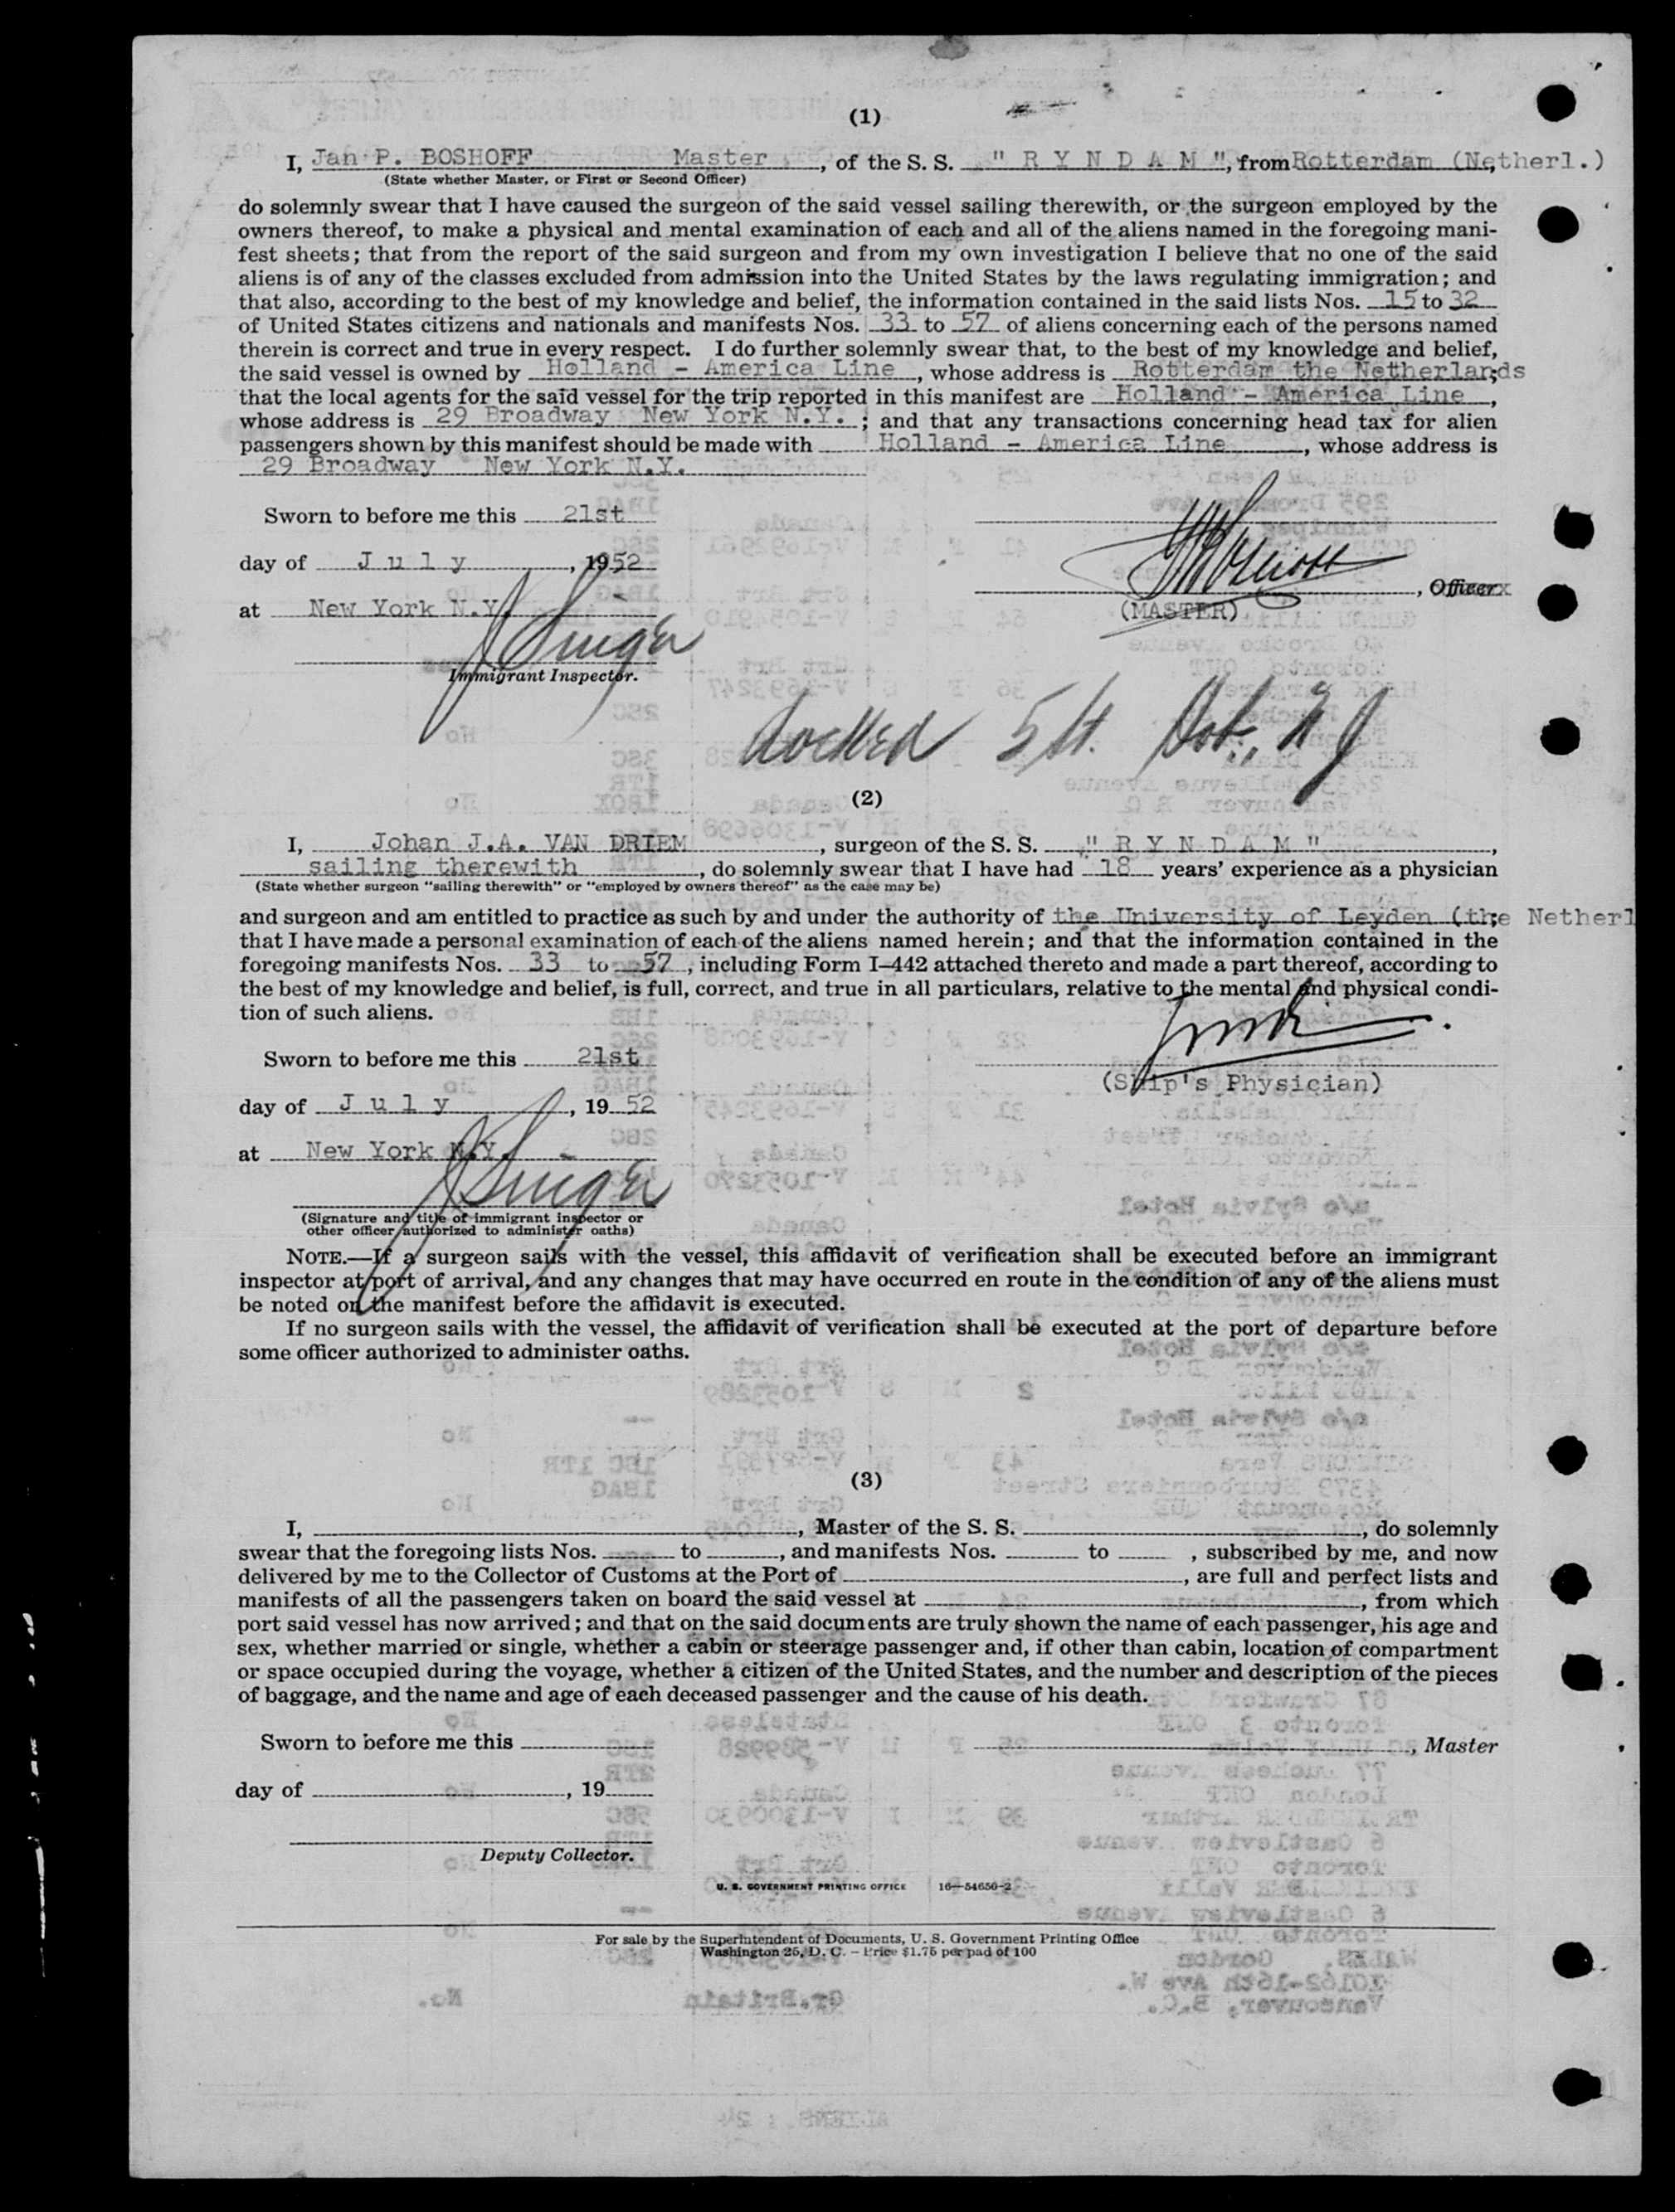 (1)
I, Jan P. BOSHOFF Master, of the S. S. " R Y N D A M ", from Rotterdam (Netherl.)
(State whether Master, or First or Second Officer)
do solemnly swear that I have caused the surgeon of the said vessel sailing therewith, or the surgeon employed by the
owners thereof, to make a physical and mental examination of each and all of the aliens named in the foregoing mani-
fest sheets; that from the report of the said surgeon and from my own investigation I believe that no one of the said
aliens is of any of the classes excluded from admission into the United States by the laws regulating immigration; and
that also, according to the best of my knowledge and belief, the information contained in the said lists Nos. 15 to 32
of United States citizens and nationals and manifests Nos. 33 to 57 of aliens concerning each of the persons named
therein is correct and true in every respect. I do further solemnly swear that, to the best of my knowledge and belief,
the said vessel is owned by Holland - America Line, whose address is Rotterdam the Netherlands;
that the local agents for the said vessel for the trip reported in this manifest are Holland - America Line,
whose address is 29 Broadway New York N.Y.; and that any transactions concerning head tax for alien
passengers shown by this manifest should be made with Holland - America Line, whose address is
29 Broadway New York N.Y.
Sworn to before me this 21st
day of J u l y, 1952
, Officer
at New York N.Y.
(MASTER)
J Singer
Immigrant Inspector.
docked 5th. Hob., N J
(2)
I, Johan J.A. VAN DRIEM, surgeon of the S. S. " R Y N D A M ",
sailing therewith, do solemnly swear that I have had 18 years' experience as a physician
(State whether surgeon "sailing therewith" or "employed by owners thereof" as the case may be)
and surgeon and am entitled to practice as such by and under the authority of the University of Leyden (the Netherl;
that I have made a personal examination of each of the aliens named herein; and that the information contained in the
foregoing manifests Nos. 33 to 57, including Form I–442 attached thereto and made a part thereof, according to
the best of my knowledge and belief, is full, correct, and true in all particulars, relative to the mental and physical condi-
tion of such aliens.
Sworn to before me this 21st
(Ship's Physician)
day of J u l y, 19 52
at New York N.Y.
J Singer
(Signature and title of immigrant inspector or
other officer authorized to administer oaths)
NOTE.—If a surgeon sails with the vessel, this affidavit of verification shall be executed before an immigrant
inspector at port of arrival, and any changes that may have occurred en route in the condition of any of the aliens must
be noted on the manifest before the affidavit is executed.
If no surgeon sails with the vessel, the affidavit of verification shall be executed at the port of departure before
some officer authorized to administer oaths.
(3)
I, , Master of the S. S. , do solemnly
swear that the foregoing lists Nos. to , and manifests Nos. to , subscribed by me, and now
delivered by me to the Collector of Customs at the Port of , are full and perfect lists and
manifests of all the passengers taken on board the said vessel at , from which
port said vessel has now arrived; and that on the said documents are truly shown the name of each passenger, his age and
sex, whether married or single, whether a cabin or steerage passenger and, if other than cabin, location of compartment
or space occupied during the voyage, whether a citizen of the United States, and the number and description of the pieces
of baggage, and the name and age of each deceased passenger and the cause of his death.
Sworn to before me this
, Master
day of , 19
Deputy Collector.
U. S. GOVERNMENT PRINTING OFFICE 16—54656-2
For sale by the Superintendent of Documents, U. S. Government Printing Office
Washington 25, D. C. – Price $1.75 per pad of 100